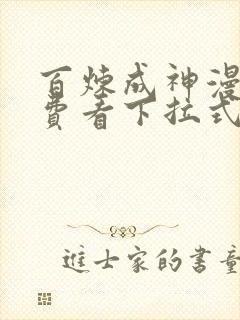 百炼成神漫
费看下拉式
进士家的书童